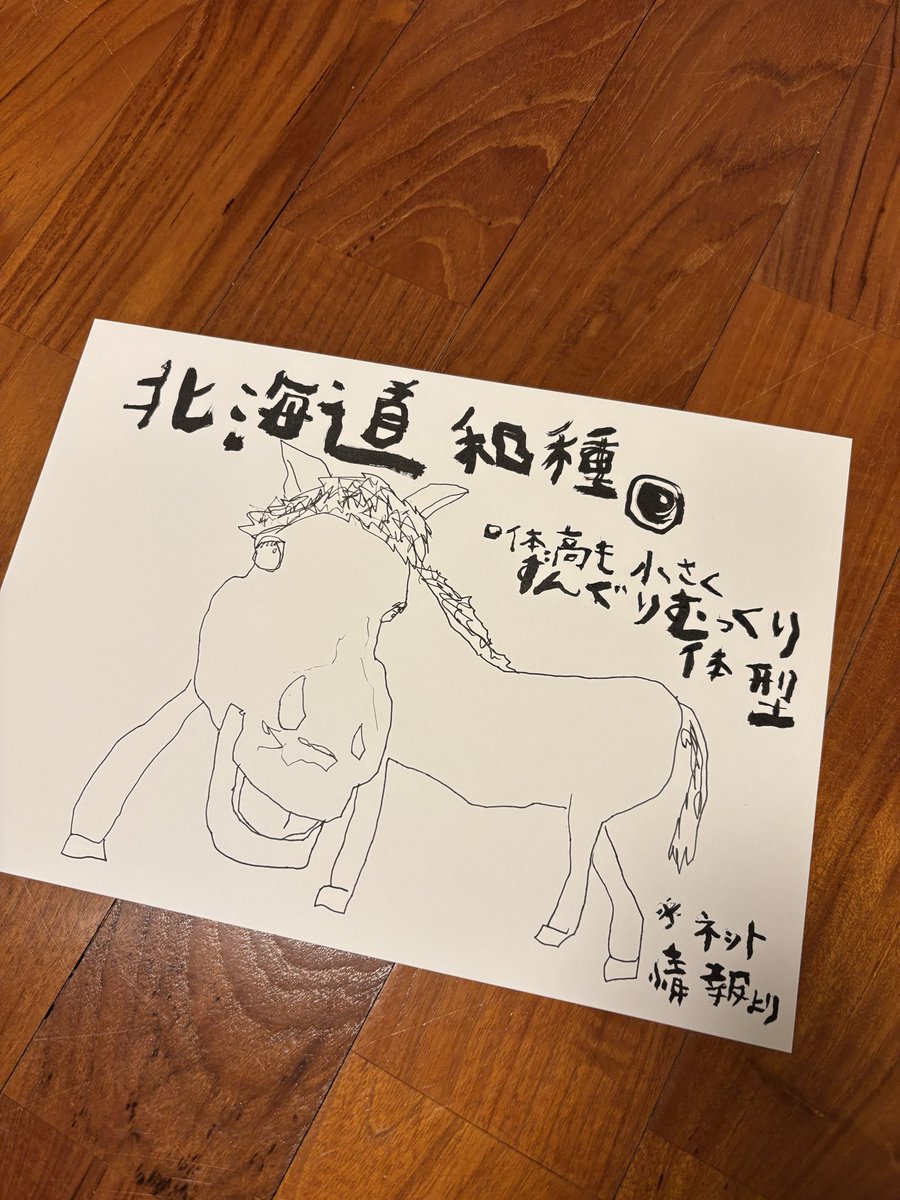 北海道和種
体高も小さく
ずんぐりむっくり
体型
※ネット
情報より